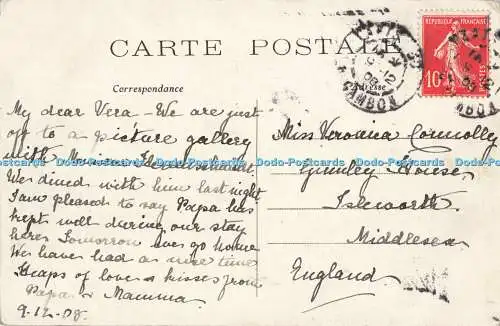 CARTE POSTALE
Correspondance
Adresse
RÉPUBLIQUE FRANÇAISE
10
PARIS
R. CAMBON
My dear Vera - We are just
off to a picture gallery
with
We dined with him last night
I am pleased to say Papa has
kept well during our stay
here. Tomorrow we go home
We have had a nice time
Heaps of love & kisses from
Papa & Mamma
9-12-08.
Miss Veronica Connolly
Gumley House,
Isleworth.
Middlesex
England
Dodo-Postcards Dodo-Postcards Dodo-Postcards Dodo-Postcards